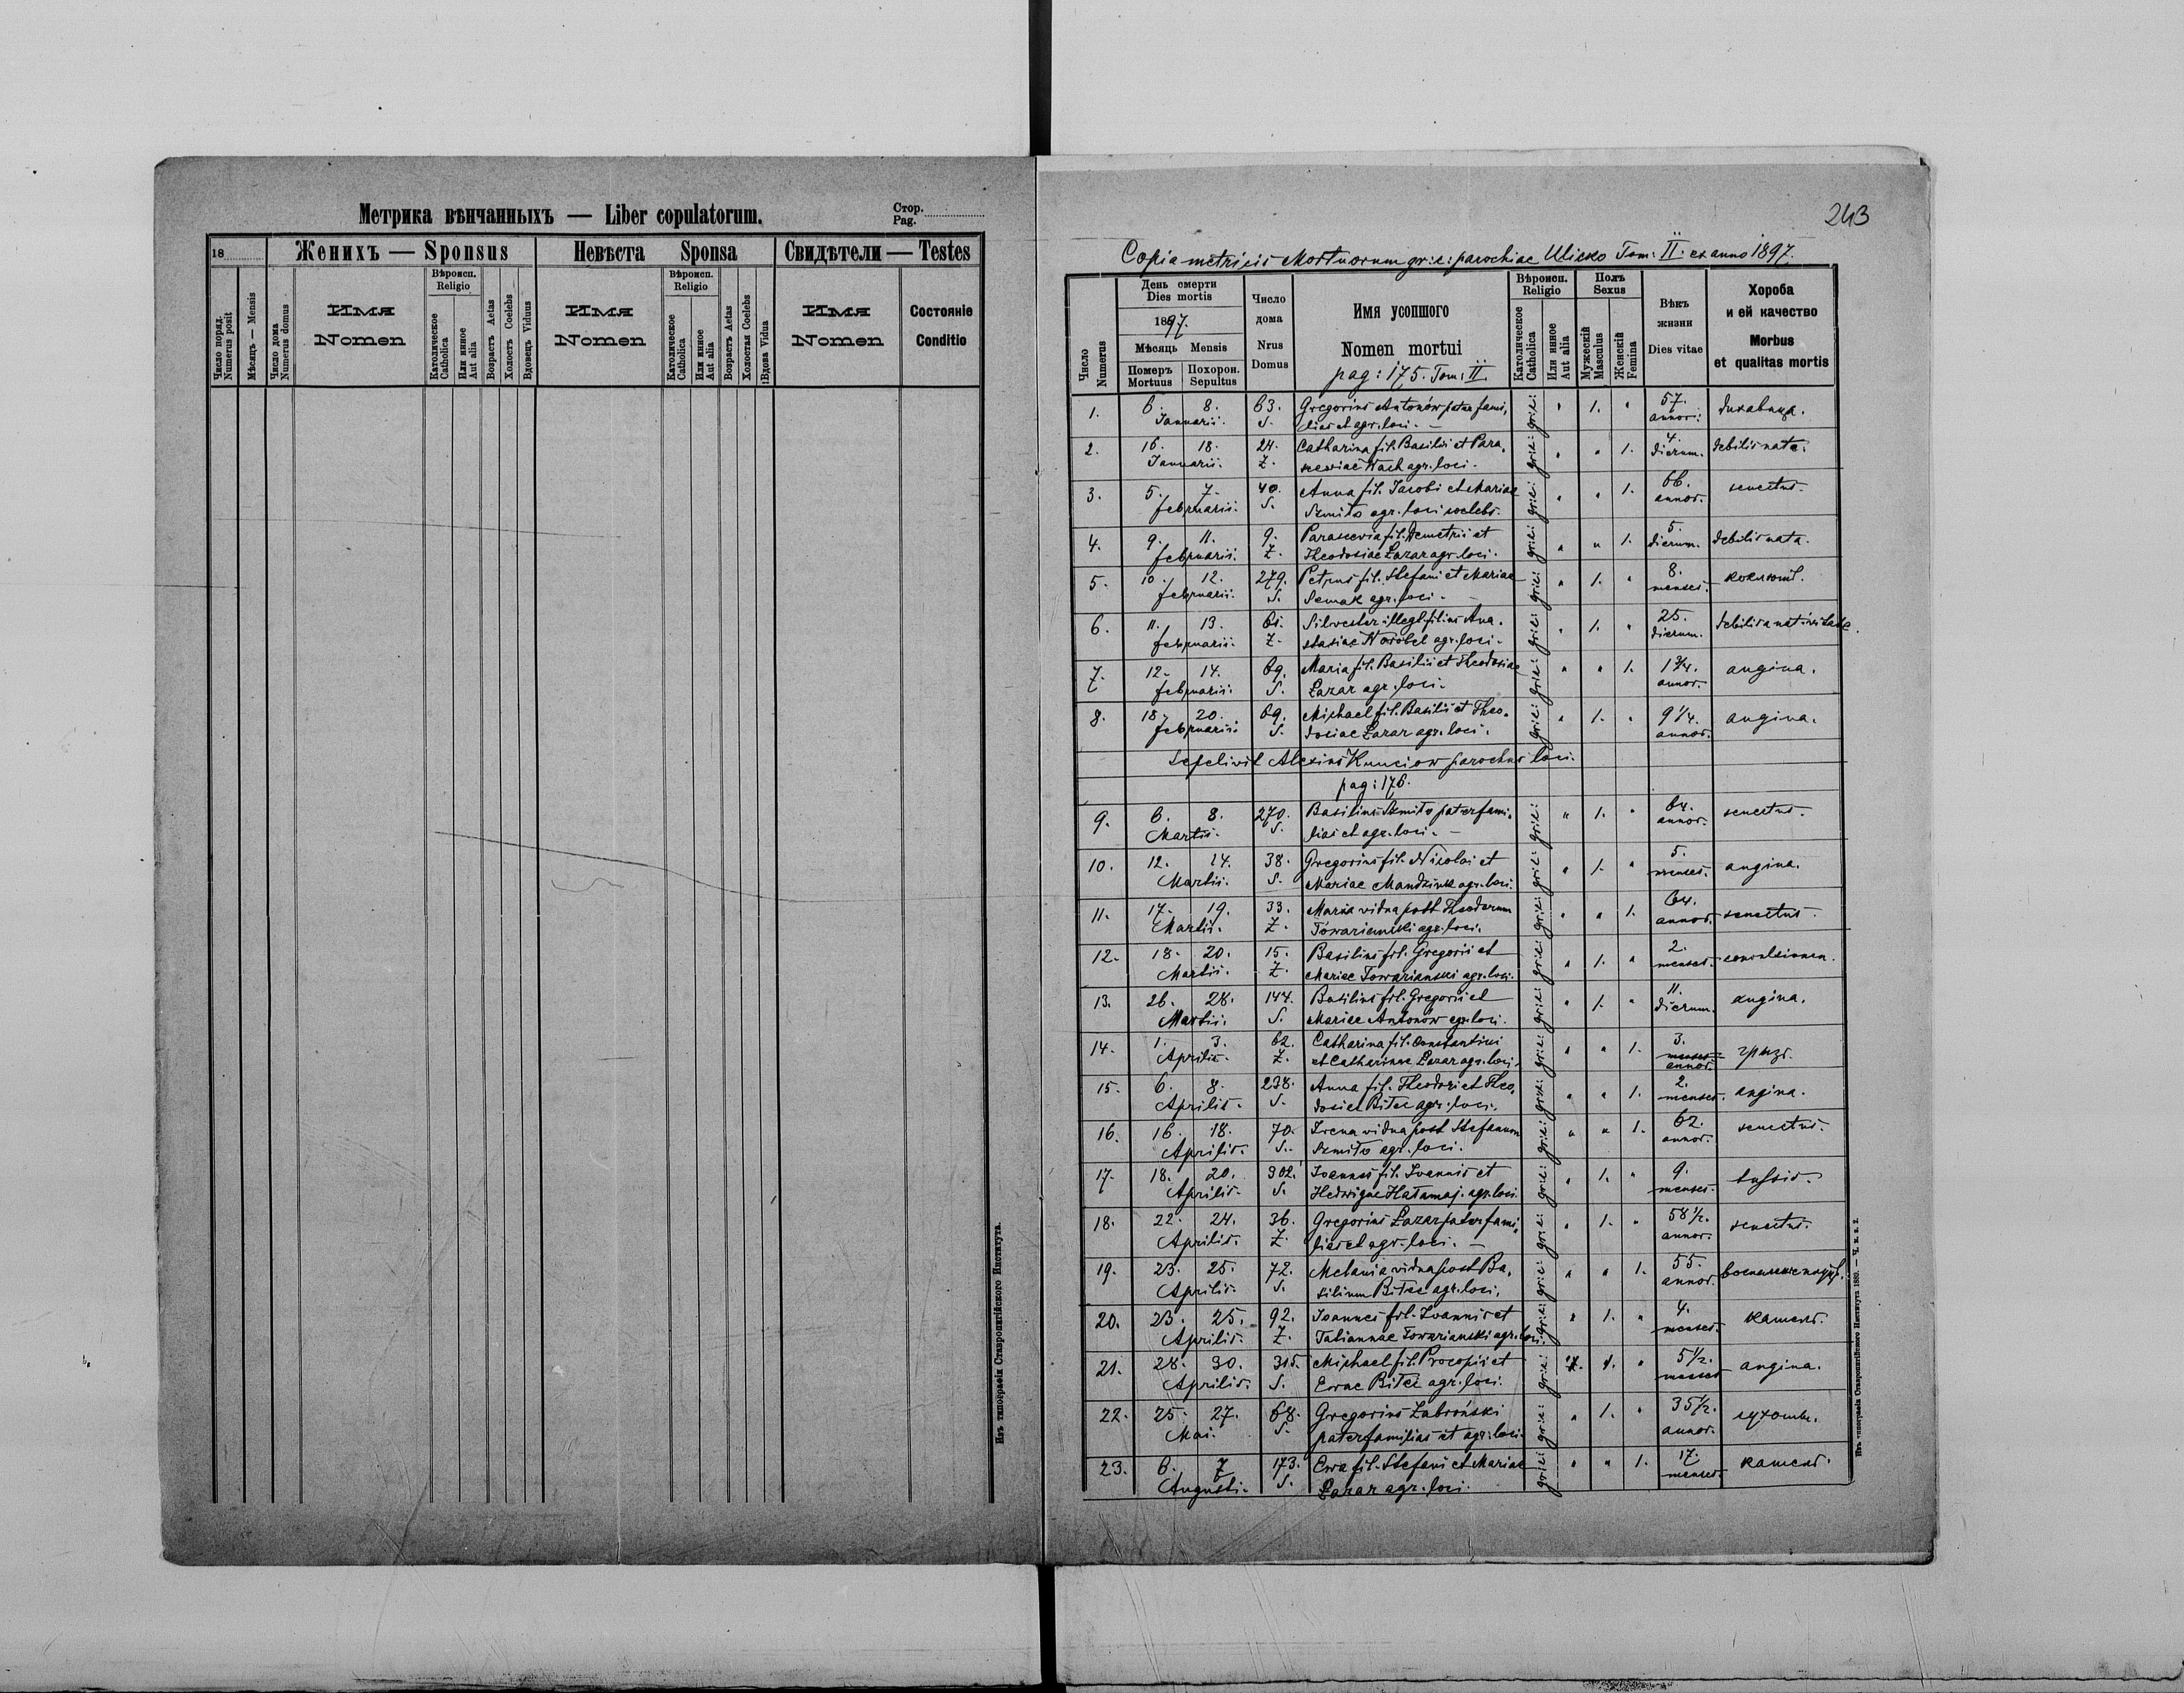 Метрика вѣнчанныхъ — Liber copulatorum.
Стор.
Pag.
18
Женихъ — Sponsus
Невѣста Sponsa
Свидѣтели — Testes
Число поряд.
Numerus posit
Мѣсяцъ — Mensis
Число дома
Numerus domus
Имя
Nomen
Вѣроисп.
Religio
Католическое
Catholica
Или инное
Aut alia
Возрастъ Aetas
Холостъ Coelebs
Вдовецъ Viduus
Имя
Nomen
Вѣроисп.
Religio
Католическое
Catholica
Или инное
Aut alia
Возрастъ Aetas
Холостая Coelebs
Вдова Vidua
Имя
Nomen
Состояніе
Conditio
Изъ типографіи Ставропигійского Института.
243
Copia metricis Mortuorum gr: c: parochiae Ulicko Tom: II ex anno 1897.
Число
Numerus
День смерти
Dies mortis
1897.
Мѣсяць Mensis
Померъ
Mortuus
Похорон.
Sepultus
Число
дома
Nrus
Domus
Имя усопшого
Nomen mortui
pag: 175. Tom: II.
Вѣроисп.
Religio
Католическое
Catholica
Или инное
Aut alia
Полъ
Sexus
Мужескій
Masculus
Женскій
Femina
Вѣкъ
жизни
Dies vitae
Хороба
и ей качество
Morbus
et qualitas mortis
1. 6. 8. 63. Gregorius Antonów pater fami, gr: c: " 1. " 57. дихавица.
Januarii. S. lias et agr. loci. — annor:
2. 16. 18. 24. Catharina fil. Basilii et Para, gr: c: " " 1. 4. debilis nata.
Januarii. Z. sceviae Wach agr. loci. dierum.
3. 5. 7. 40. Anna fil. Jacobi et Mariae gr: c: " " 1. 66. senectus.
februarii. S. Szmito agr. loci coelebs. annor.
4. 9. 11. 9. Parascevia fil. Demetrii et gr: c: " " 1. 5. debilis nata.
februarii. Z. Theodosiae Łazar agr. loci. dierum.
5. 10. 12. 279. Petrus fil. Stefani et Mariae gr: c: " 1. " 8. коклюшъ.
februarii. S. Semak agr. loci. menses.
6. 11. 13. 61. Silvester illegl. filius Ana, gr: c: " 1. " 25. debilis a nativitate.
februarii. Z. stasiae Woróbel agr. loci. dierum.
7. 12. 14. 69. Maria fil. Basilii et Theodosiae gr: c: " " 1. 1 3/4. angina.
februarii. S. Łazar agr. loci. annor.
8. 18. 20. 69. Michael fil. Basilii et Theo, gr: c: " 1. " 9 1/4. angina.
februarii. S. dosiae Łazar agr. loci. annor.
Sepelivit Alexius Kunciow parochus loci.
pag: 176.
9. 6. 8. 270. Basilius Szmito pater fami, gr: c: " 1. " 64. senectus.
Martii. S. lias et agr. loci. — annor.
10. 12. 14. 38. Gregorius fil. Nicolai et gr: c: " 1. " 5. angina.
Martii. S. Mariae Mandziuk agr. loci. menses.
11. 17. 19. 33. Maria vidua post Theodorum gr: c: " " 1. 64. senectus.
Martii. Z. Towarianski agr. loci. annor.
12. 18. 20. 15. Basilius fil. Gregorii et gr: c: " 1. " 2.
Martii. Z. Mariae Towarianski agr. loci. menses.
13. 26. 28. 144. Basilius fil. Gregorii et gr: c: " 1. " 11. angina.
Martii. S. Mariae Antonów agr. loci. dierum.
14. 1. 3. 62. Catharina fil. Constantini gr: c: " " 1. 3. грызъ.
Aprilis. Z. et Catharinae Łazar agr. loci. menses annor.
15. 6. 8. 238. Anna fil. Theodori et Theo, gr: c: " " 1. 2. angina.
Aprilis. S. dosiae Bitec agr. loci. menses.
16. 16. 18. 70. Irena vidua post Stefanum gr: c: " " 1. 62. senectus.
Aprilis. S. Szmito agr. loci. annor.
17. 18. 20. 302. Joannes fil. Joannis et gr: c: " 1. " 9. tussis.
Aprilis. S. Hedvigae Hałamaj. agr. loci. menses.
18. 22. 24. 36. Gregorius Łazar pater fami, gr: c: " 1. " 58 1/2. senectus.
Aprilis. Z. lias et agr. loci. — annor.
19. 23. 25. 72. Melania vidua post Ba, gr: c: " " 1. 55.
Aprilis. S. silium Bitec agr. loci. annor.
20. 23. 25. 92. Joannes fil. Joannis et gr: c: " 1. " 4. камень.
Aprilis. Z. Tatiannae Towarianski agr. loci. menses.
21. 28. 30. 315. Michael fil. Procopii et gr: c: 1. " 5 1/2. angina.
Aprilis. S. Evae Bitec agr. loci. menses
22. 25. 27. 68. Gregorius Zabroński gr: c: " 1. " 35 1/2. сухоты.
Mai. S. paterfamilias et agr: loci. annor.
23. 6. 7. 173. Eva fil. Stefani et Mariae gr: c: " " 1. 17. камень.
Augusti. S. Łazar agr. loci. menses.
Изъ типографіи Ставропигійского Института 1880. — Ч. к. в. 2.